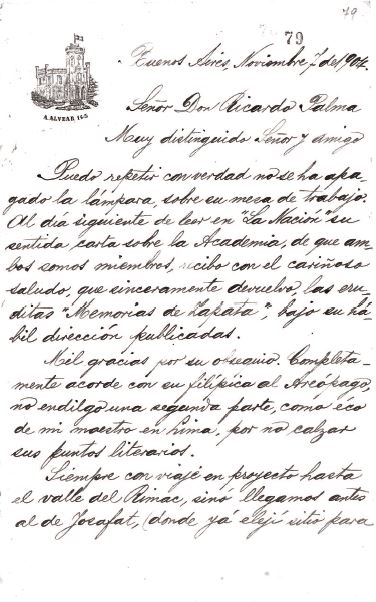 79
79
A. ALVEAR 165
Buenos Aires, Noviembre 7 de 1904.
Señor Don Ricardo Palma
Muy distinguido Señor y amigo
Puedo repetir con verdad no se ha apa-
gado la lámpara sobre su mesa de trabajo.
Al día siguiente de leer en "La Nación" su
sentida carta sobre la Academia, de que am-
bos somos miembros, recibo con el cariñoso
saludo, que sinceramente devuelvo, las eru-
ditas "Memorias de Zapata", bajo su há-
bil dirección publicadas.
Mil gracias por su obsequio. Completa-
mente acorde con su filípica al Areópago,
no endilgo una segunda parte, como éco
de mi maestro en Lima, por no calzar
sus puntos literarios.
Siempre con viaje en proyecto hasta
el valle del Rimac, sinó llegamos antes
al de Josafat, (donde yá elejí sitio para